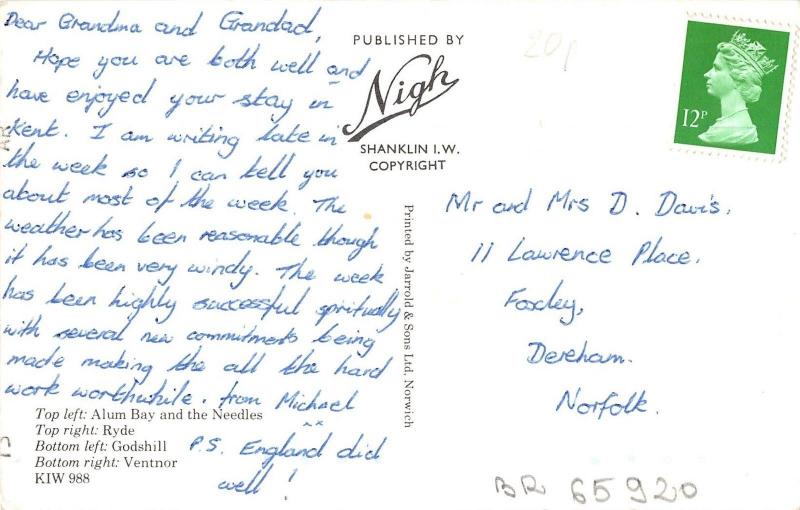 Dear Grandma and Grandad,
Hope you are both well and
have enjoyed your stay in
Kent. I am writing late in
the week so I can tell you
about most of the week. The
weather has been reasonable though
it has been very windy. The week
has been highly successful spiritually
with several new commitments being
made making the all the hard
work worthwhile. from Michael
xx
P.S. England did
well!
Top left: Alum Bay and the Needles
Top right: Ryde
Bottom left: Godshill
Bottom right: Ventnor
KIW 988
PUBLISHED BY
Nigh
SHANKLIN I.W.
COPYRIGHT
Printed by Jarrold & Sons Ltd, Norwich
20p
12P
Mr and Mrs D. Davis,
11 Lawrence Place,
Foxley,
Dereham.
Norfolk.
BR 65920